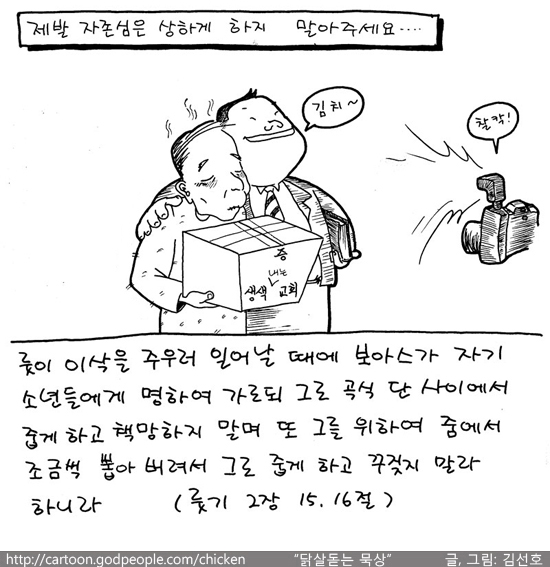 제발 자존심은 상하게 하지 말아주세요....
김치~
찰칵!
증
내는
생색 교회
룻이 이삭을 주우러 일어날 때에 보아스가 자기
소년들에게 명하여 가로되 그로 곡식 단 사이에서
줍게 하고 책망하지 말며 또 그를 위하여 줌에서
조금씩 뽑아 버려서 그로 줍게 하고 꾸짖지 말라
하니라 (룻기 2장 15.16절)
http://cartoon.godpeople.com/chicken "닭살돋는 묵상" 글, 그림: 김선호